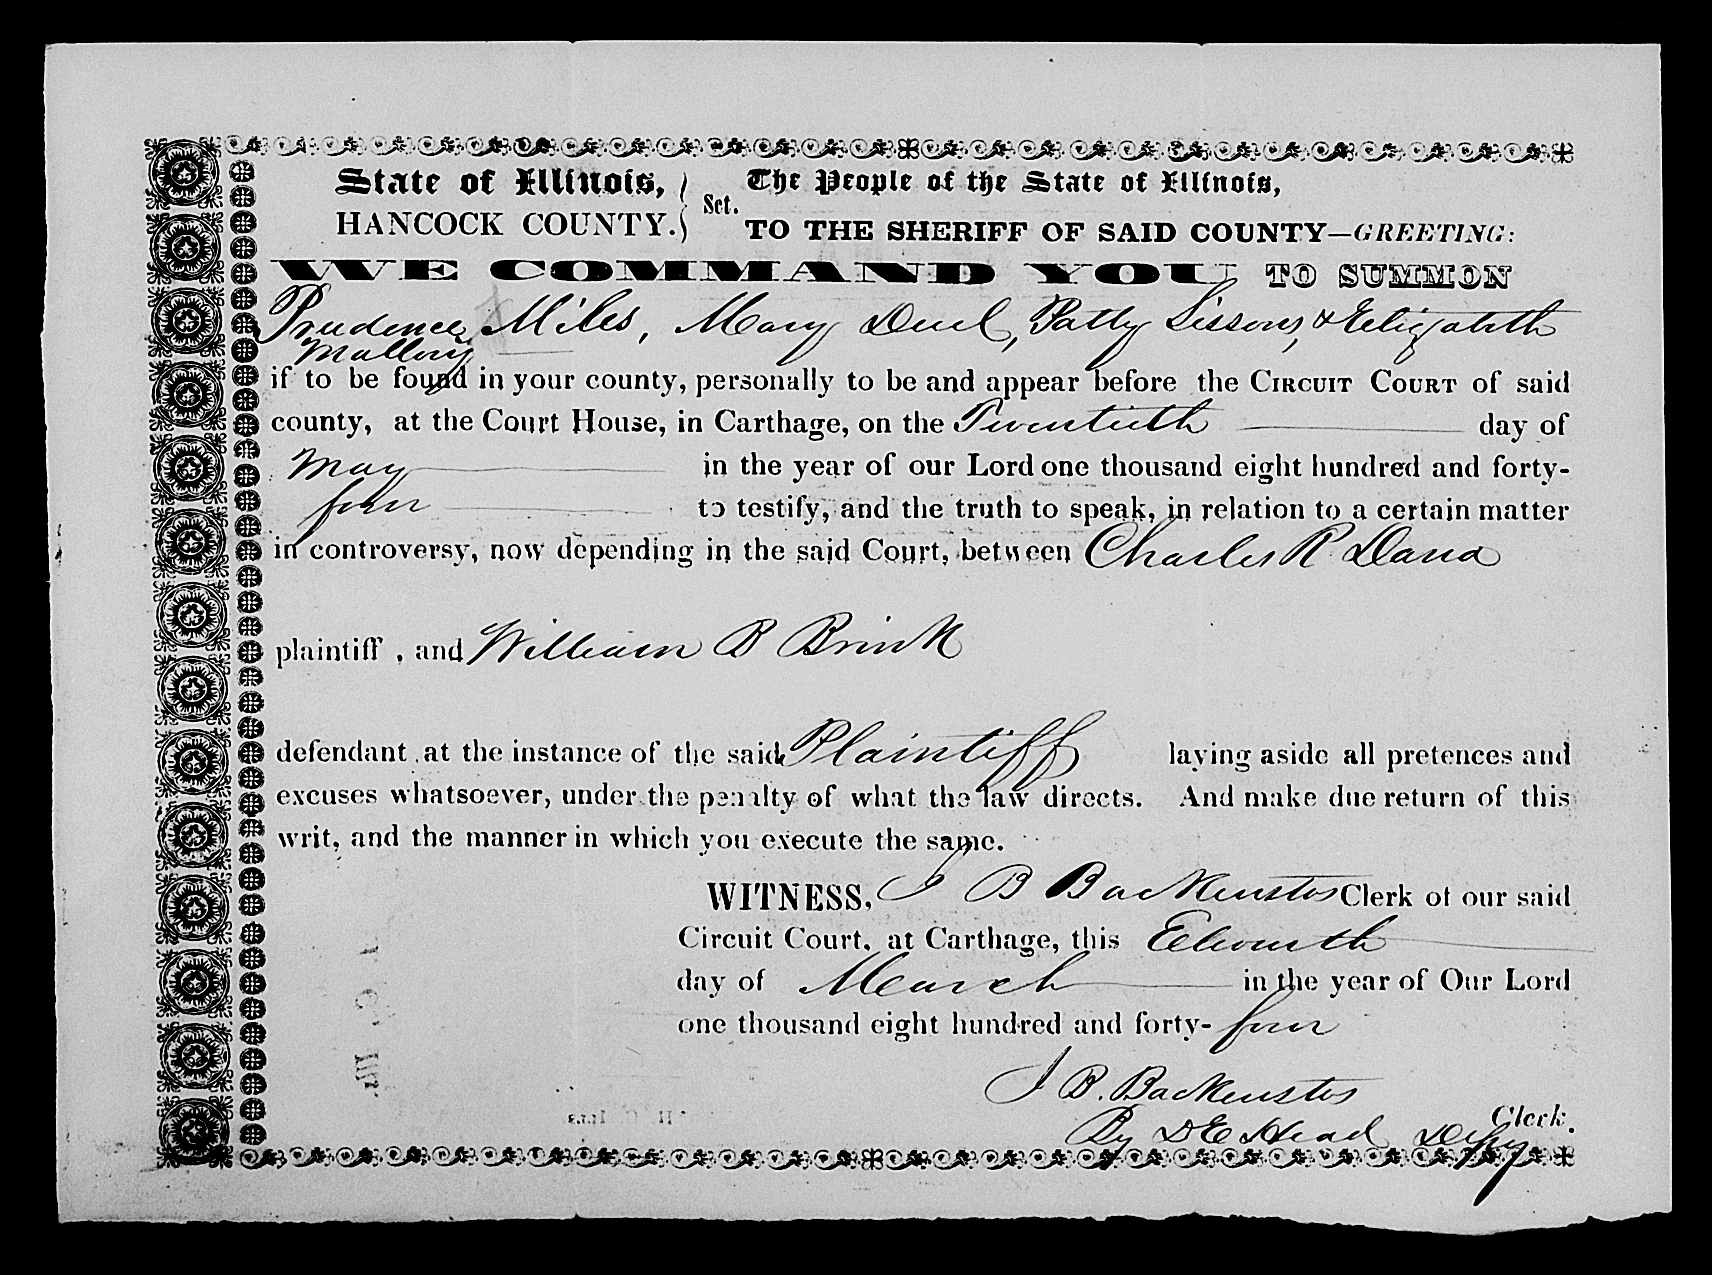 State of Illinois, } Sct. The People of the State of Illinois,
HANCOCK COUNTY. TO THE SHERIFF OF SAID COUNTY—GREETING:
WE COMMAND YOU TO SUMMON
Prudence Miles, Mary Duel, Patty Sissons, & Elizabeth
Mallory
if to be found in your county, personally to be and appear before the CIRCUIT COURT of said
county, at the Court House, in Carthage, on the Twentieth day of
May in the year of our Lord one thousand eight hundred and forty-
four to testify, and the truth to speak, in relation to a certain matter
in controversy, now depending in the said Court, between Charles R Dana
plaintiff , and William B Brink
defendant at the instance of the said Plaintiff laying aside all pretences and
excuses whatsoever, under the penalty of what the law directs. And make due return of this
writ, and the manner in which you execute the same.
WITNESS, J B Backenstos Clerk of our said
Circuit Court, at Carthage, this Eleventh
day of March in the year of Our Lord
one thousand eight hundred and forty- four
J B. Backenstos
Clerk.
By D E Head Depy